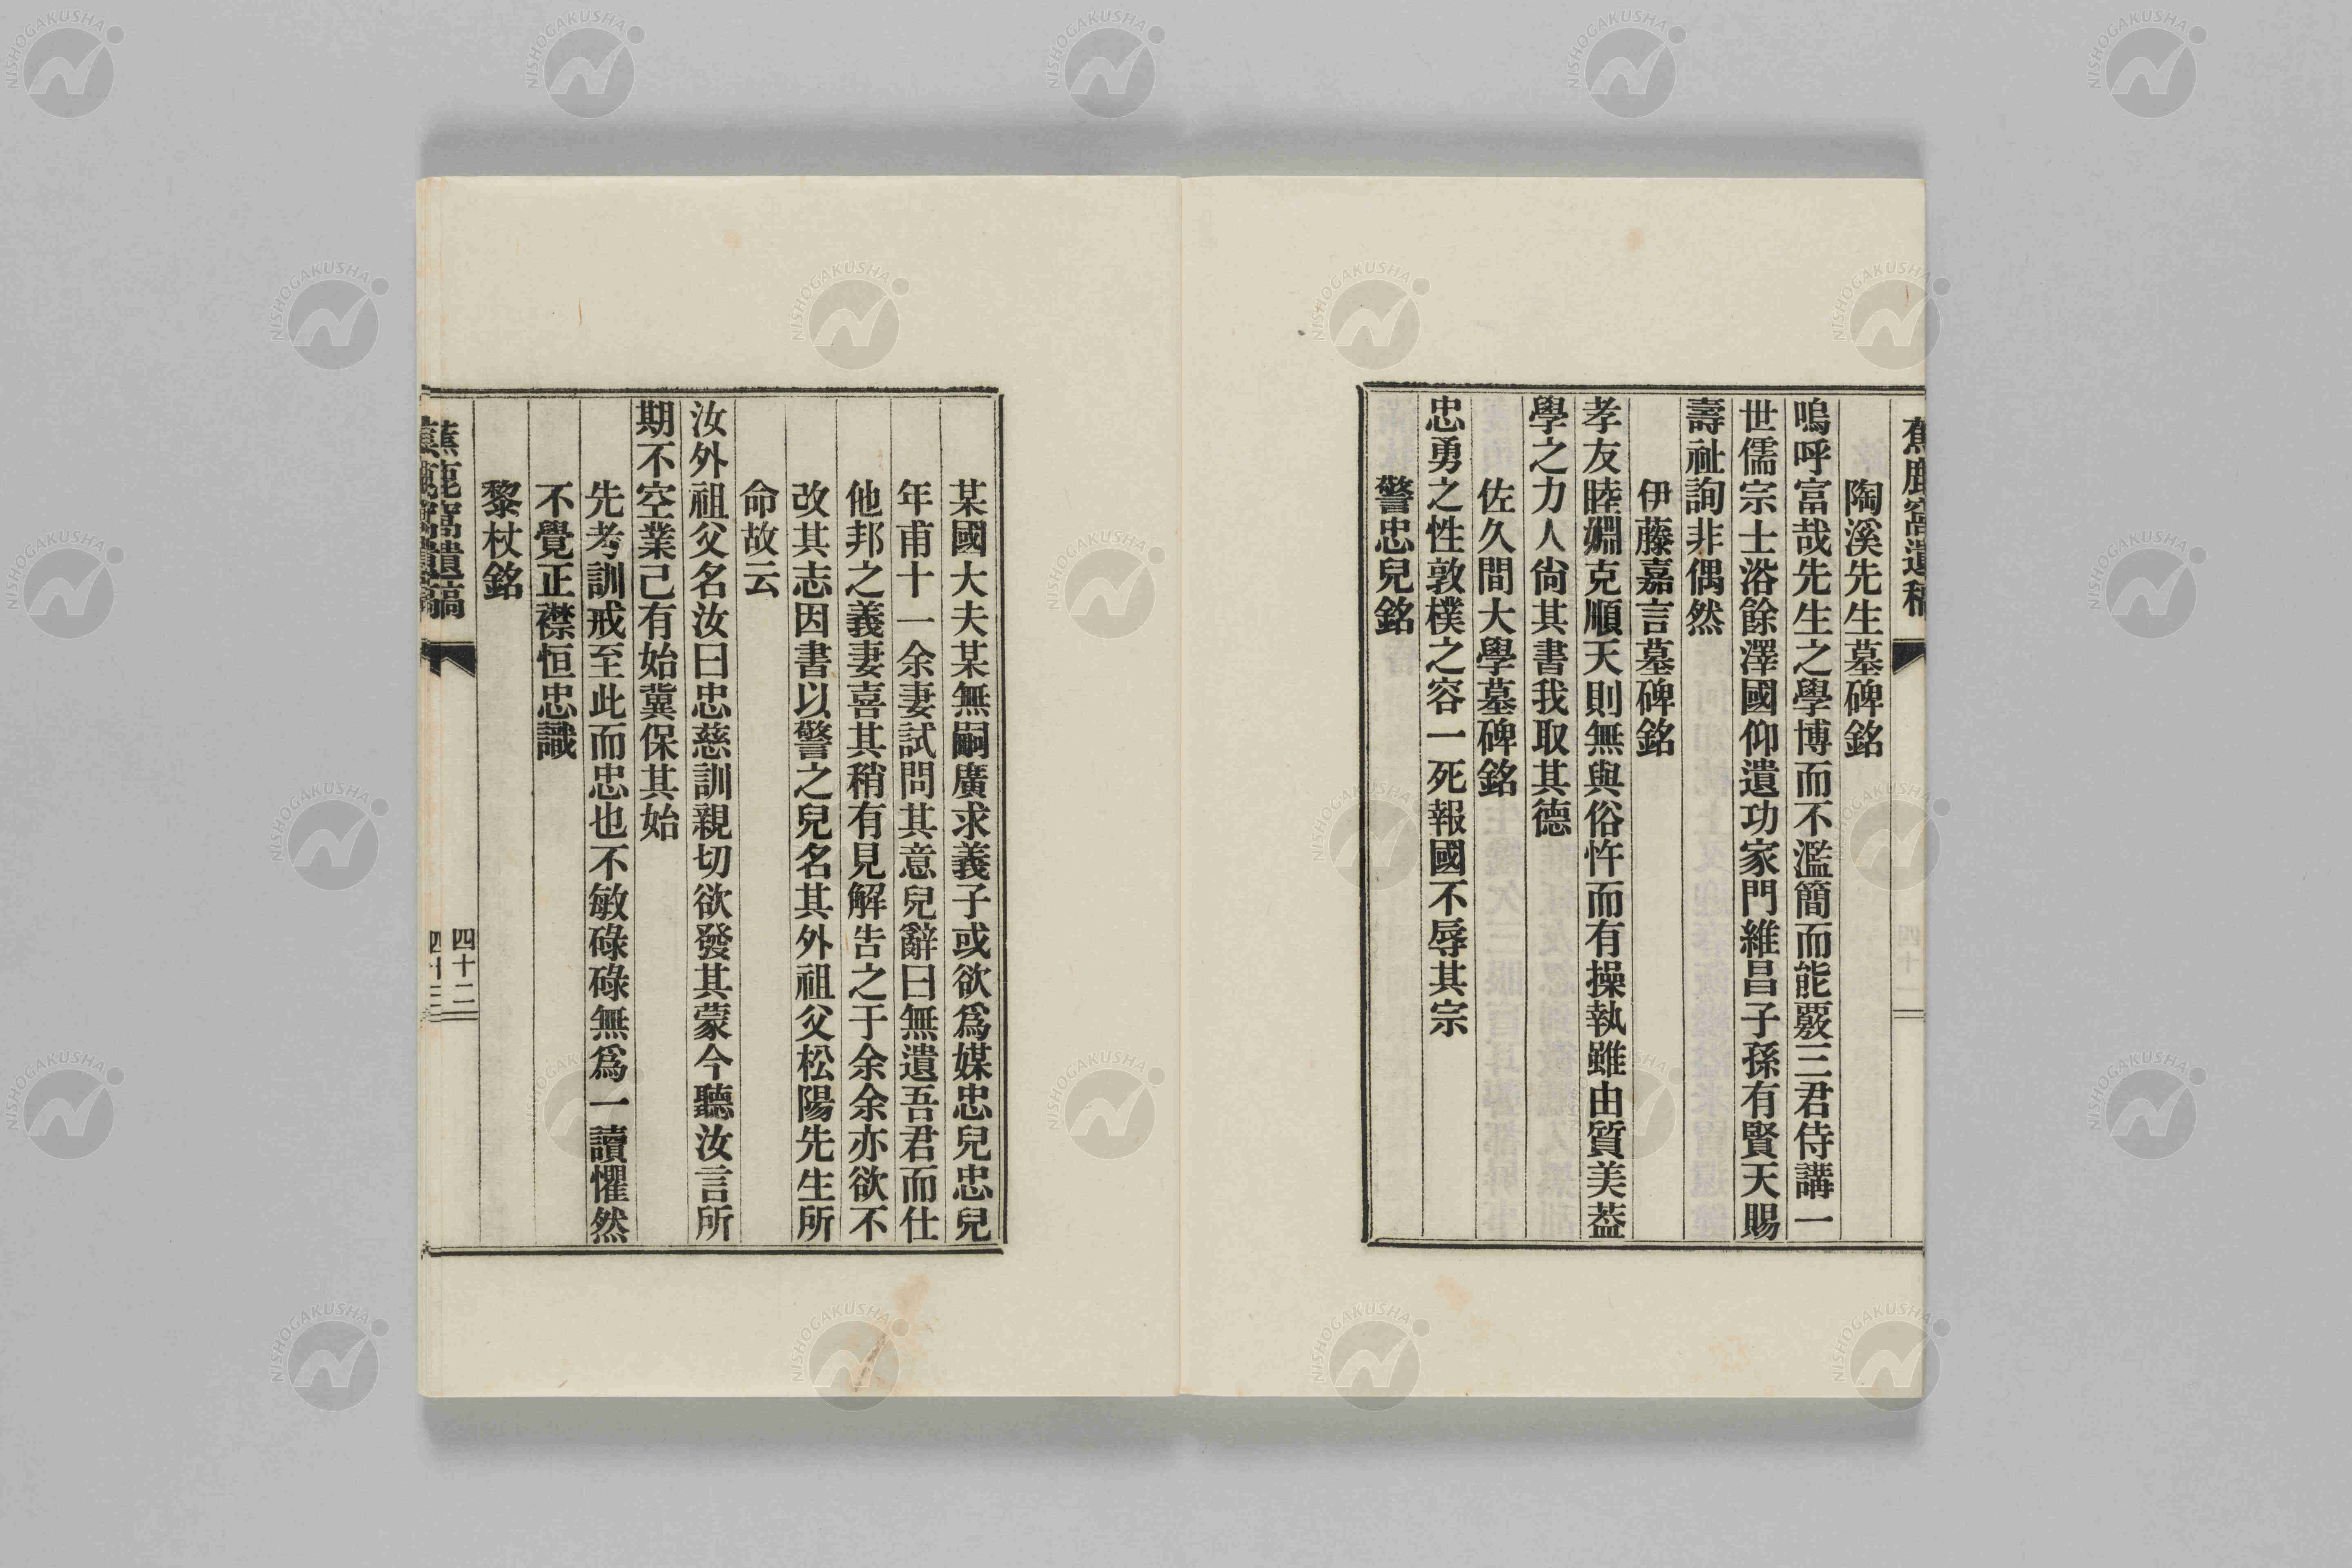 蕉鹿窩遺稿
陶溪先生墓碑銘
嗚呼富哉先生之學博而不濫簡而能覈三君侍講一
世儒宗士浴餘澤國仰遺功家門維昌子孫有賢天賜
壽祉詢非偶然
伊藤嘉言墓碑銘
孝友睦婣克順天則無與俗忤而有操執雖由質美葢
學之力人尙其書我取其德
佐久間大學墓碑銘
忠勇之性敦樸之容一死報國不辱其宗
警忠兒銘
某國大夫某無嗣廣求義子或欲爲媒忠兒忠兒
年甫十一余妻試問其意兒辭曰無遺吾君而仕
他邦之義妻喜其稍有見解告之于余余亦欲不
改其志因書以警之兒名其外祖父松陽先生所
命故云
汝外祖父名汝曰忠慈訓親切欲發其蒙今聽汝言所
期不空業已有始冀保其始
先考訓戒至此而忠也不敏碌碌無爲一讀懼然
不覺正襟恒忠識
黎杖銘
蕉鹿窩遺稿
四十二
四十三
NISHOGAKUSHA